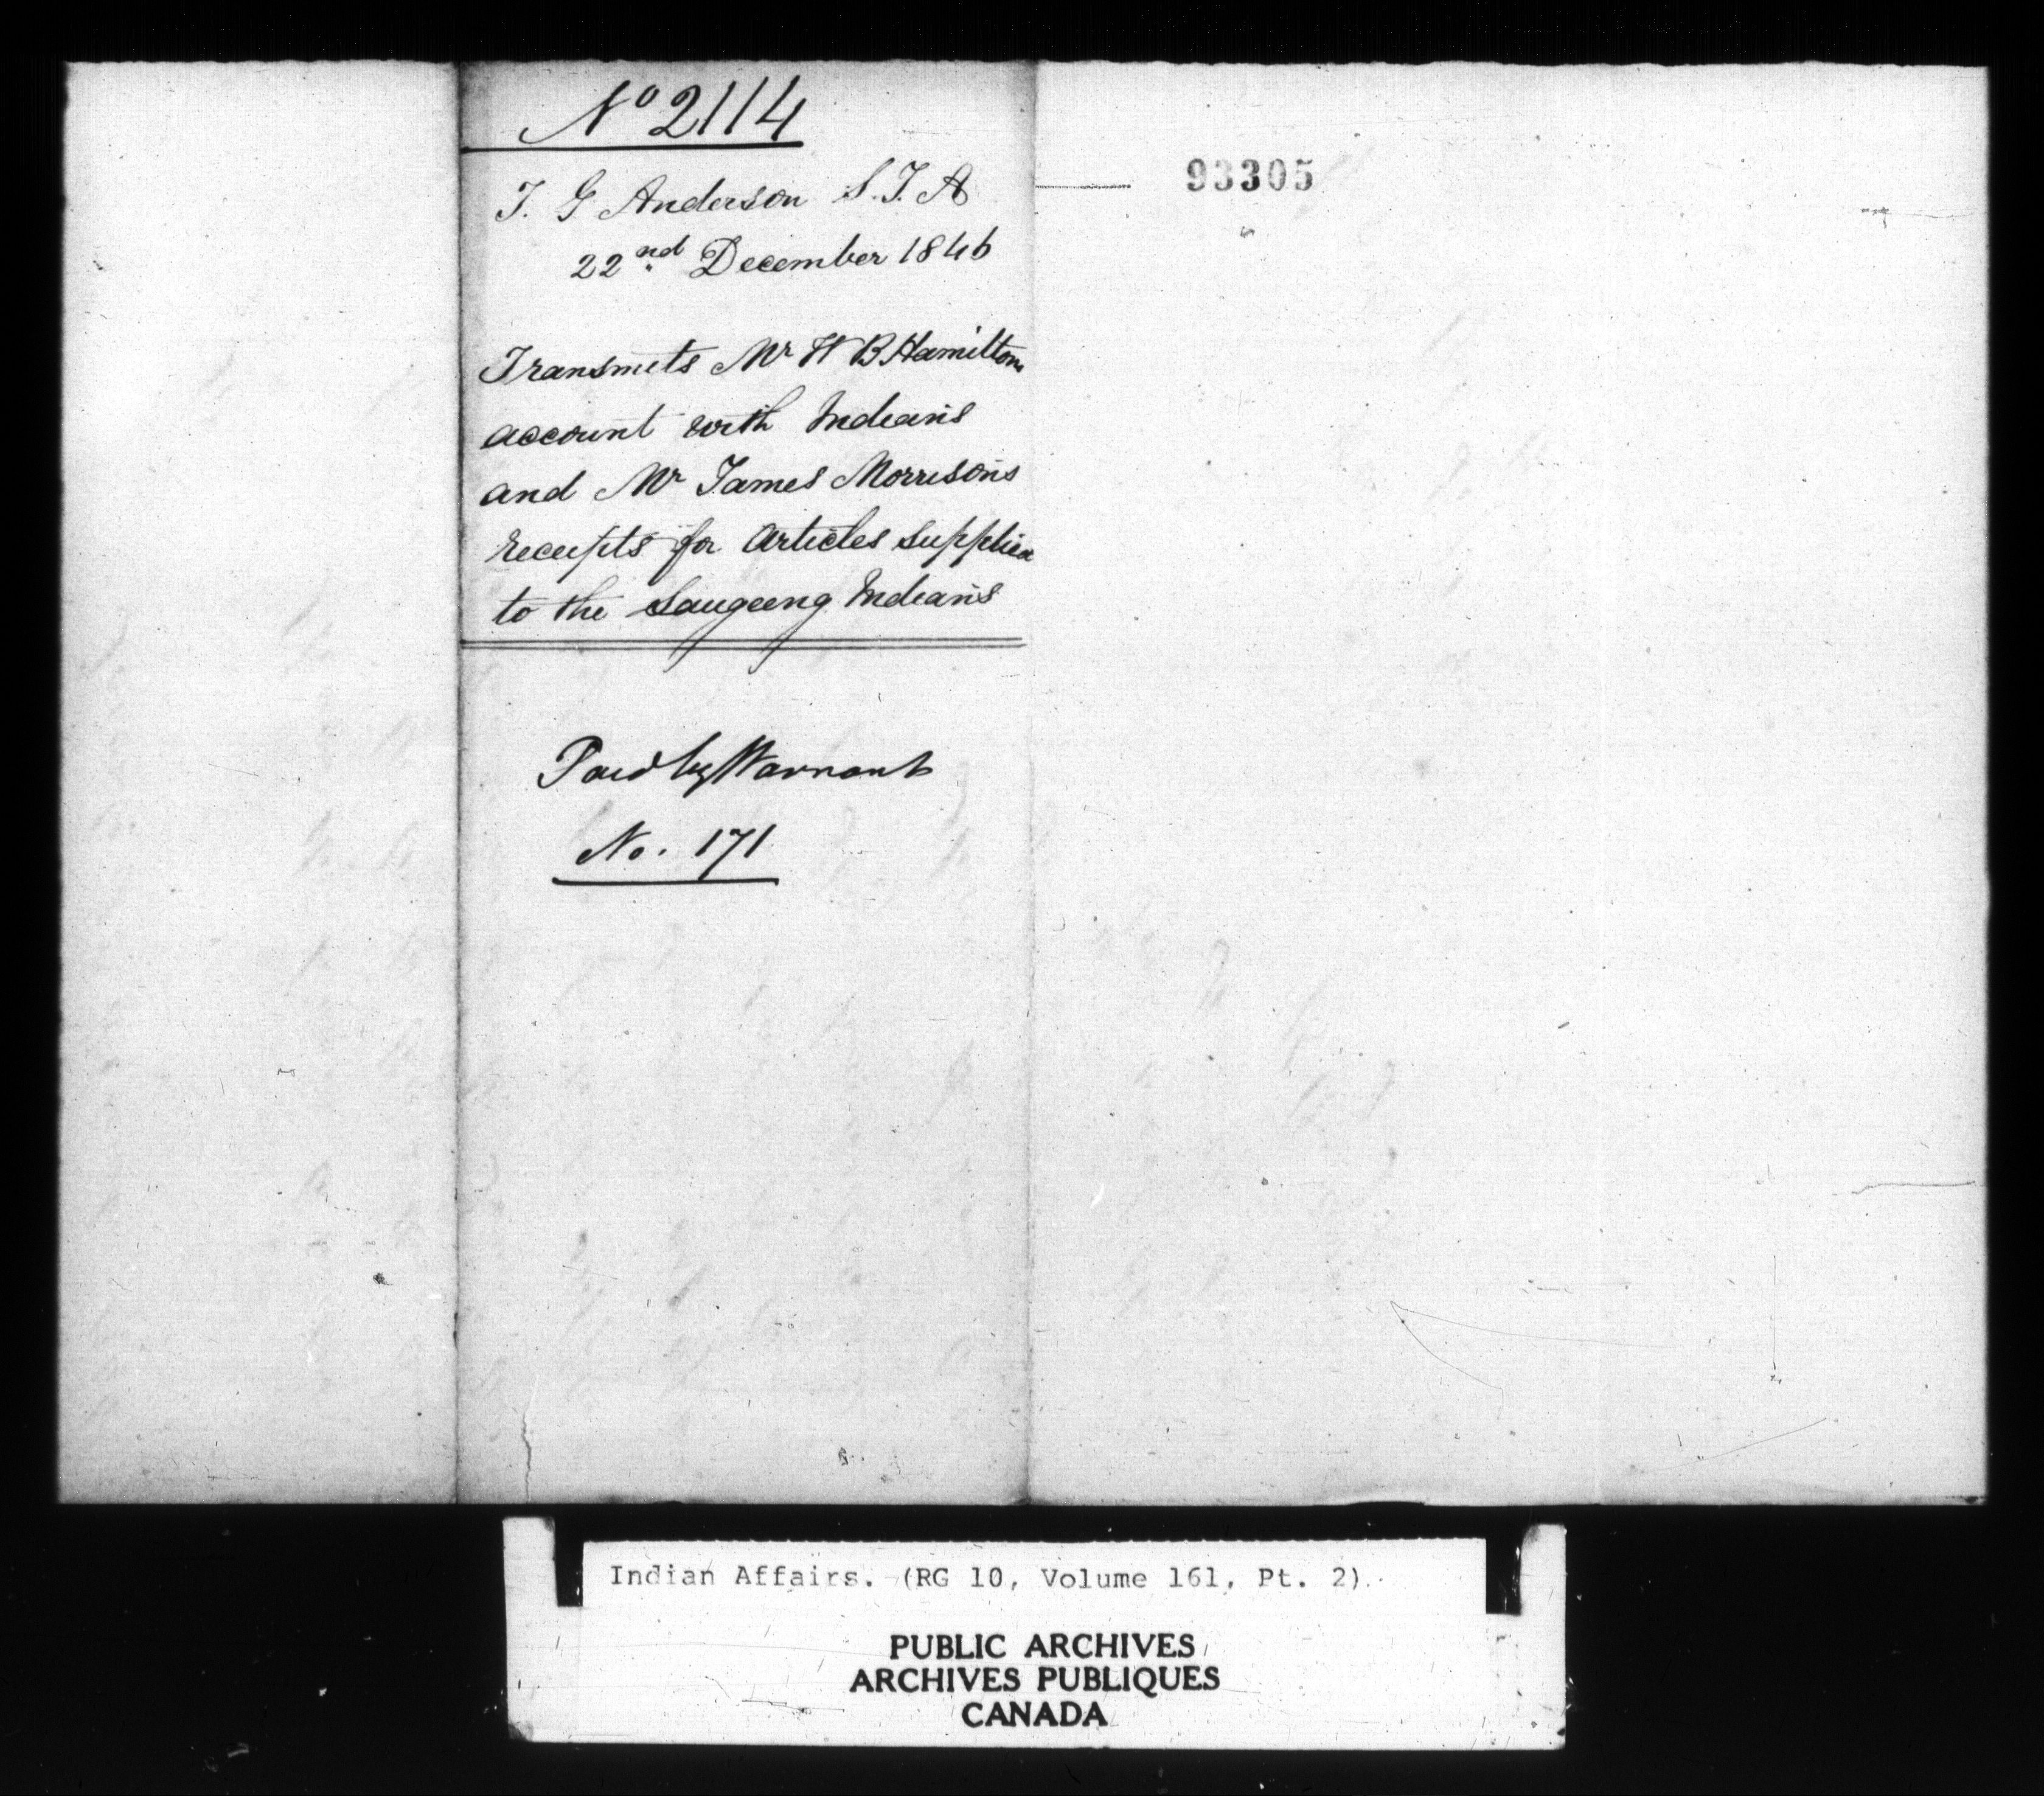 No 2114
T. G Anderson S.I.A
22nd December 1846
Transmits Mr W B Hamiltons
account with Indians
and Mr James Morrison's
receipts for Articles supplied
to the Saugeeng Indians
Paid by Warrant
No. 171
93305
Indian Affairs. (RG 10, Volume 161, Pt. 2)
PUBLIC ARCHIVES
ARCHIVES PUBLIQUES
CANADA